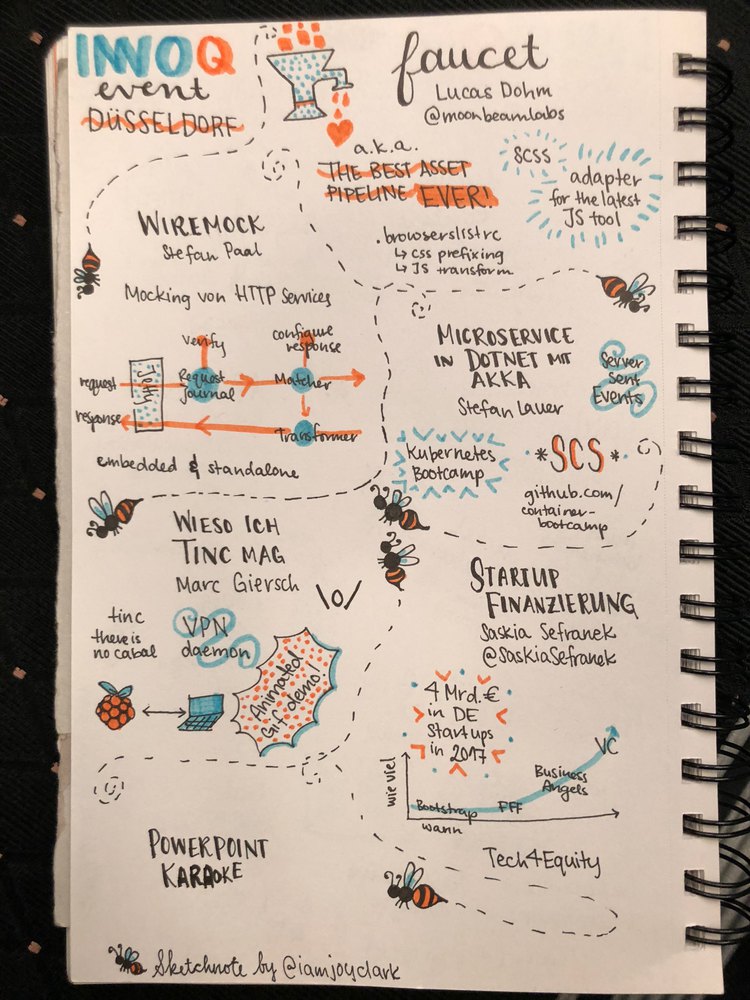 INNOQ
event
DÜSSELDORF
faucet
Lucas Dohm
@moonbeamlabs
a.k.a.
THE BEST ASSET
PIPELINE EVER!
SCSS
adapter
for the latest
JS tool
.browserslistrc
↳ CSS prefixing
↳ JS transform
WIREMOCK
Stefan Paal
Mocking von HTTP Services
verify
configure
response
request
Jetty
Request
Journal
Matcher
response
Transformer
embedded & standalone
MICROSERVICE
IN DOTNET MIT
AKKA
Stefan Lauer
Server
Sent
Events
Kubernetes
Bootcamp
*SCS*
github.com/
container-
bootcamp
WIESO ICH
TINC MAG
Marc Giersch
\o/
tinc
there is
no cabal
VPN
daemon
Animated
Gif demo!
STARTUP
FINANZIERUNG
Saskia Sefranek
@SaskiaSefranek
4 Mrd. €
in DE
Startups
in 2017
wie viel
Bootstrap
FFF
Business
Angels
VC
wann
Tech4Equity
POWERPOINT
KARAOKE
Sketchnote by @iamjoyclark